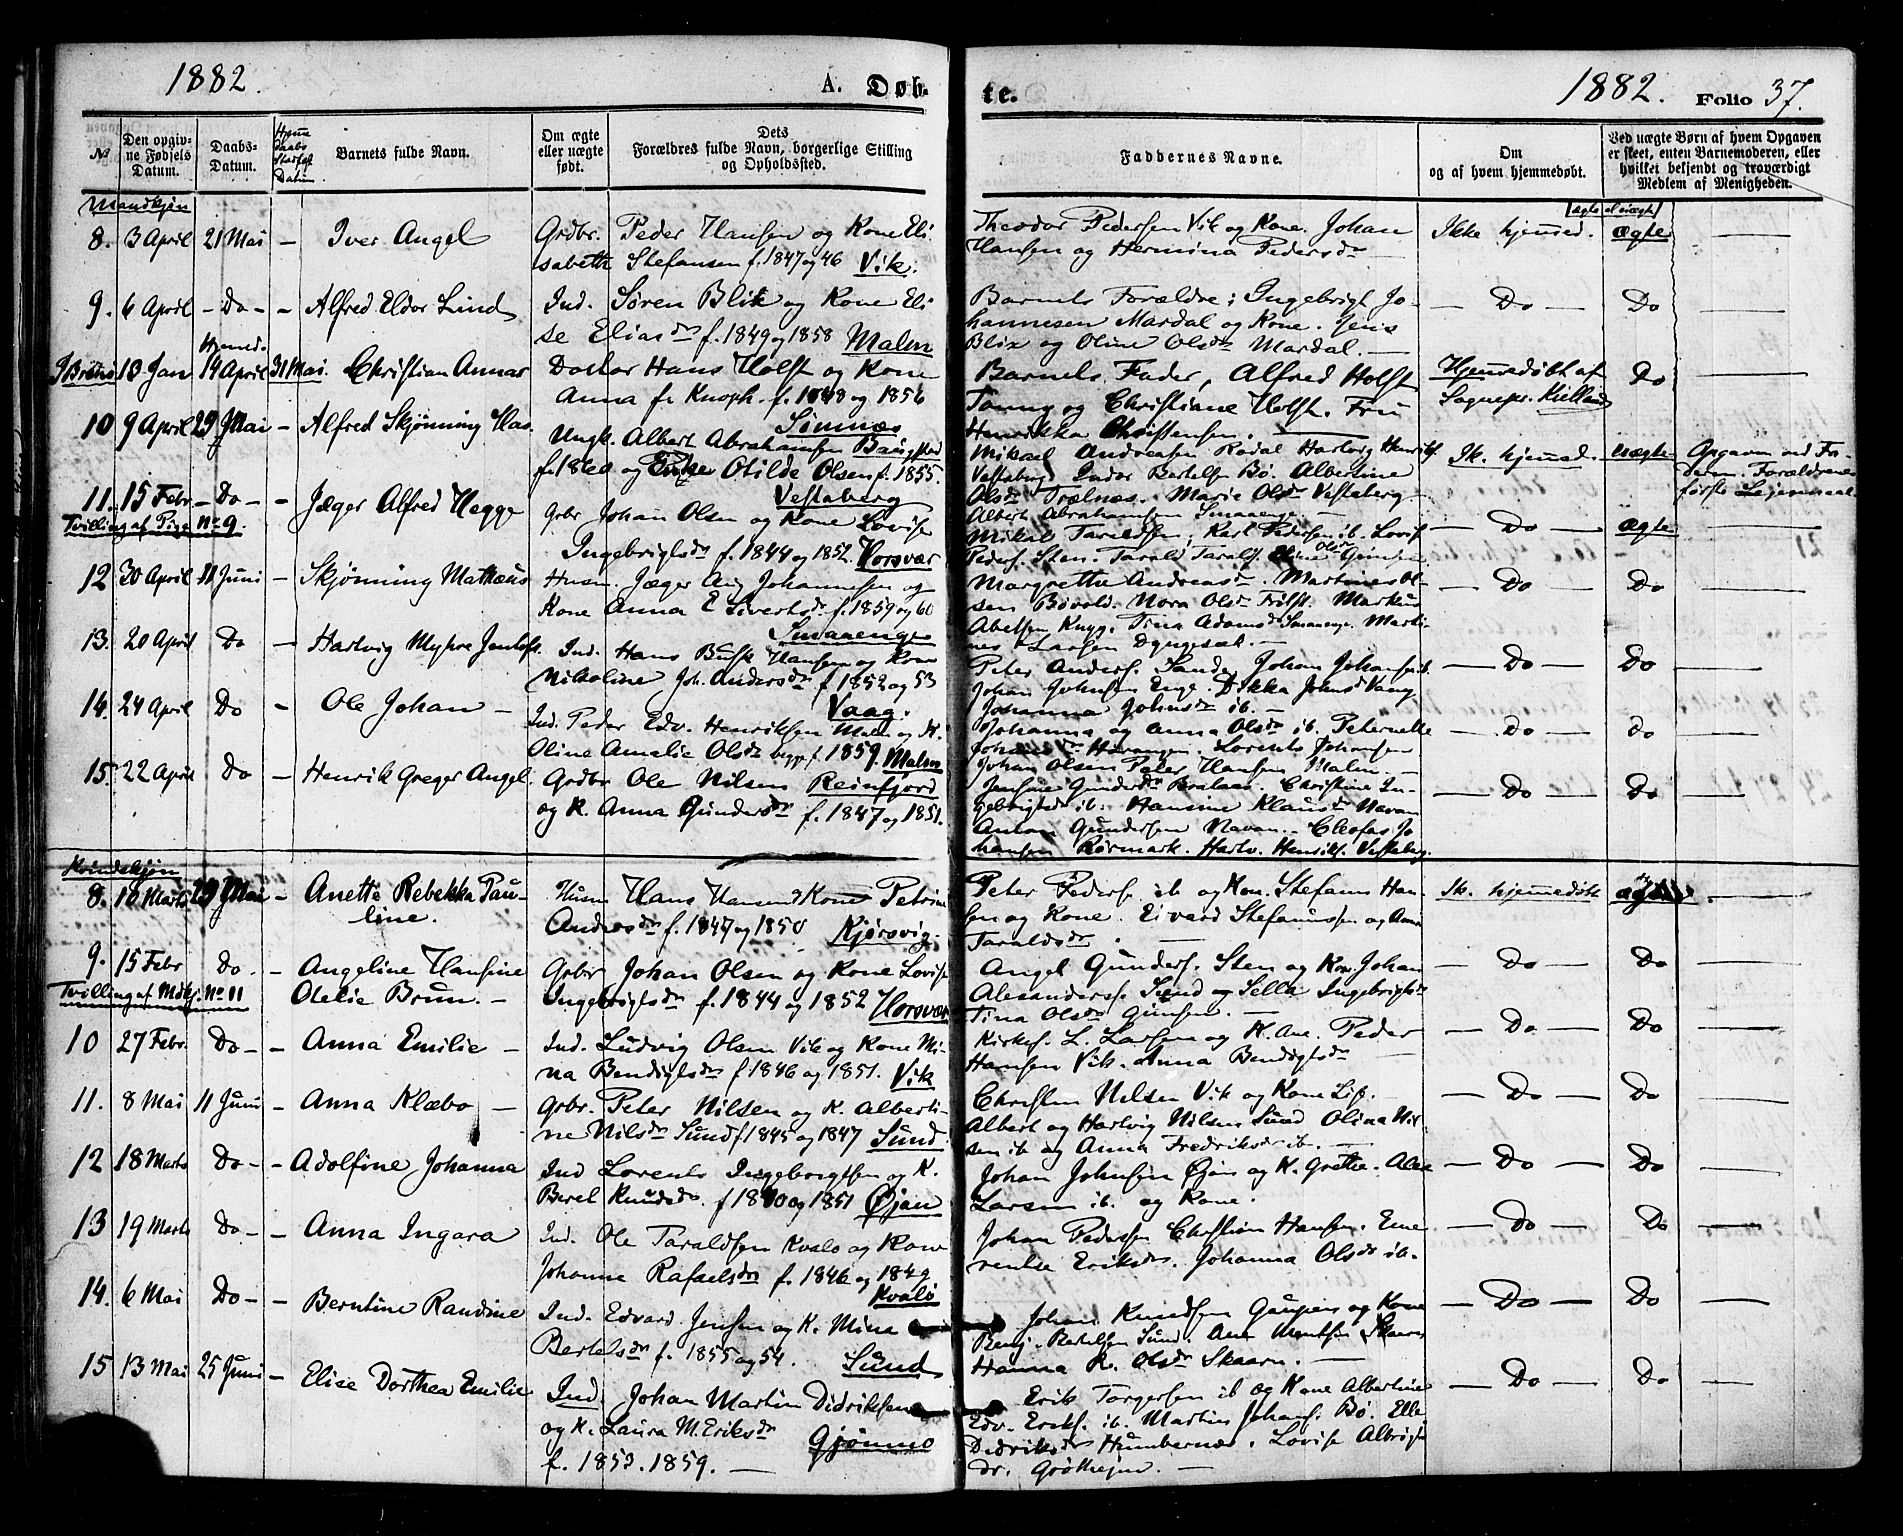 1882.
A. Døb-
te.
1882. Folio 37.
№
Den opgiv-
ne Fødsels
Datum.
Daabs-
Datum.
Hjemme
daabs
Stadfest
Datum
Barnets fulde Navn.
Om ægte
eller uægte
født.
Dets
Forældres fulde Navn, borgerlige Stilling
og Opholdssted.
Faddernes Navne.
Om
og af hvem hjemmedøbt.
Ved uægte Børn af hvem Opgaven
er skeet, enten Barnemoderen, eller
hvilket bekjendt og troværdigt
Medlem af Menigheden.
ægte el. uægte
Mandkjøn
8. 3 April 21 Mai — Iver Angel
Grdbr. Peder Hansen og Kone Eli
sabeth Stefansen f. 1847 og 46 Vik.
Theodor Pedersen Vik og Kone. Johan
Hansen og Hermina Pedersdr —
Ikke hjemmed. ægte —
9. 6 April — Do — — Alfred Eldor Lund
Ind. Søren Blix og Kone Eli
se Eliasdr f. 1849 og 1858 Malm
Barnets Forældre; Ingebrigt Jo-
hannesen Mardal og Kone. Jens
Blix og Oline Olsdr Mardal. —
— Do — Do —
Hjemd.
I Brønø 13 Jan 19 April 31 Mai. Christian Annar
Doktor Hans Holst og Kone
Anna f. Knoph. f. 1848 og 1856
Sømnæs
Barnets Fader, Alfred Holst
Tanny og Christiane Holst. Fru
Henrikka Christensen. —
Hjemmedøbt af
Sognepr. Kielland
Do
10 9 April 29 Mai — Alfred Skjønning Has
Ungk. Albert Abrahamsen Baugstad
f. 1860 og Enke Otilde Olsen f. 1855.
Vestaberg
Mikael Andreasen Rødal Hartvig Henriks
Vestaberg Indor Bertels Bø. Albertine
Olsdr Trælnæs. Marie Olsdr Vestaberg. —
Albert Abrahamsen Smaaenge. —
Ik. hjemmed. uægte
Opgaven ved Fa-
deren. Forældrenes
første Leiermaal
11. 15 Febr — Do — — Jæger Alfred Hegge
Tvilling af Pige No 9.
Grbr Johan Olsen og Kone Lovise
Ingebrigtsdr f. 1844 og 1852. Horsvær
Mikal Taraldsen; Karl Pedersen ib. Lovise
Peders. Sten. Tarald Taralds. Oline Olsdr
— Do — ægte —
12 30 April 11 Juni — Skjønning Mathæus
Husm. Jæger Aug Johannesen og
Kone Anna E Sivertsdr f. 1859 og 60
Smaaenge
Margrethe Andreasdr. Martines Ol-
sen Bøvold. Nora Olsdr. Markus
Abelsen Knyg. Tina Adamsd Smaaenge. Marti-
nes Larsen Dyngeset. —
— Do — Do —
13. 20 April Do — Hartvig Myhre Jentoft
Ind. Hans Busk Hansen og Kone
Nikoline Joh. Andersdr f. 1852 og 53
Vaag.
Peter Anders. Sande, Johan Johansen ib.
Johan Johnsen Enge. Dikka Johnsd Vaag
Johanna Johnsdr ib. —
— Do — Do —
14. 24 April Do — Ole Johan —
Ind. Peder Edv. Henriksen Malm og K.
Oline Amalie Olsdr begge f. 1859. Malm
Johanna og Anna Olsdr ib. Peternelle
Johansdr Horangen. Lorents Johansen
Johan Olsen Peter Hansen Malm. —
— Do — Do —
15. 22 April Do — Henrik Greger Angel.
Grdbr Ole Nilsen Reinfjord
og K. Anna Gundersdr f. 1847 og 1851.
Jensine Gundersdr Bralaas. Christine In-
gebrigtsdr ib. Hansine Klausdr Navan
Anton Gundersen Navan. — Cleofas Jo
hansen Rørmark. Hartv. Henriks. Vestaberg.
— Do — Do —
Kvindekjøn
8. 10 Marts 29 Mai — Anette Rebekka Pau-
line.
Husm Hans Hansen og Kone Petrine
Andresdr f. 1847 og 1850 Kjørsvig.
Peter Peders. ib og Kone. Stefanus Han-
sen og Kone. Eivard Stefanussen og Ane
Taraldsdr. —
Ik. hjemmedøbt ægte —
9. 15 Febr Do — Angeline Hansine
Tvilling af Mdkj. No 11 Otelie Brun. —
Grbr Johan Olsen og Kone Lovise
Ingebrigtsdr f. 1844 og 1852 Horsvær
Angel Gunders. Sten og Kone Johan
Alexanders. Sund og Sella Ingebrigtsdr
Tina Olsdr —
— Do — Do —
10 27 Febr. Do — — Anna Emilie —
Ind. Ludvig Olsen Vik og Kone Mi-
na Bendigtsdr f. 1846 og 1851. Vik
Kirkes. L. Larsen og K. Ane. Peder
Hansen Vik. Anna Bendigtsdr —
— Do — Do —
11. 8 Mai 11 Juni — Anna Klæbo —
Grbr. Peter Nilsen og K. Alberti-
ne Nilsdr Sund f. 1845 og 1847 Sund.
Christen Nilsen Vik og Kone Lis. —
Albert og Hartvig Nilsen Sund Olina Nil
sen ib og Anna Fredriksdr ib. —
— Do — Do —
12 18 Marts Do — — Adolfine Johanna
Ind Lorents Ingeborgtsen og K.
Beret Knudsdr. f. 1840 og 1851 Øjan
Johan Johnsen Øjan og K. Grethe. Alex
Larsen ib. og Kone.
— Do — Do —
13 19 Marts Do — — Anna Ingara
Ind. Ole Taraldsen Kvalø og Kone
Johanne Rafaelsdr f. 1846 og 1849
Kvalø
Johan Pedersen Christian Hansen. Eme
rentse Eriksdr. Johanna Olsdr ib.
— Do — Do —
14. 6 Mai Do — — Berntine Randine
Ind. Edvard Jensen og K. Mina
Bertelsdr f. 1855 og 54. Sund
Johan Knudsen Gaupen og Kone
Benj. Bertelsen Sund. Ane Skaarn
Hanna K. Olsdr Skaarn. —
— Do — Do —
15 13 Mai 25 Juni — Elise Dorthea Emilie
Ind Johan Martin Didriksen
og K. Laura M. Eriksdr
f. 1853. 1859. — Gjønnø
Erik Torgersen ib og Kone Albertine
Edv. Eriks. ib. Martin Johans. Bø. Elle
Didriksdr Humbernæs. Lovise Albrigts
dr. Grøttheim. —
— Do — Do —